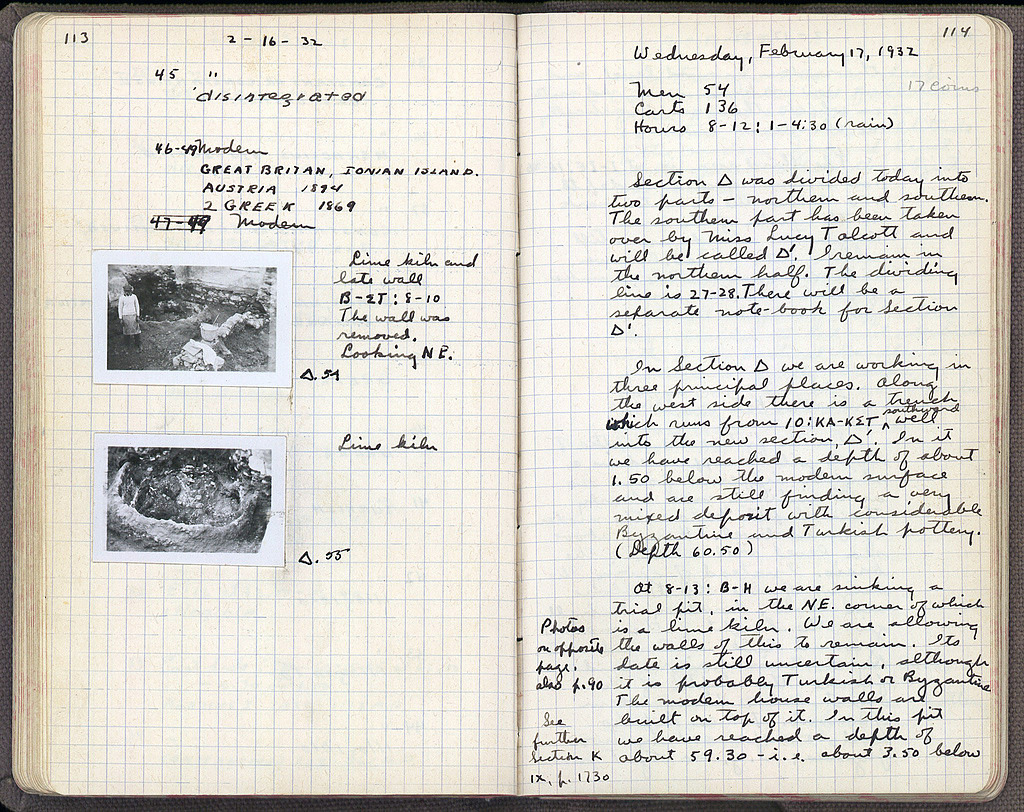 113
2 - 16 - 32
45 "
disintegrated
46-49 Modern
GREAT BRITAN, IONIAN ISLAND.
AUSTRIA 1894
2 GREEK 1869
47-49 Modern
Lime kiln and
late wall
B-ΣT: 8-10
The wall was
removed.
Looking NE.
Δ.54
Lime kiln
Δ.55
114
Wednesday, February 17, 1932
17 Coins
Men 54
Carts 136
Hours 8-12; 1-4:30 (rain)
Section Δ was divided today into
two parts – northern and southern.
The southern part has been taken
over by Miss Lucy Talcott and
will be called Δ'. I remain in
the northern half. The dividing
line is 27-28. There will be a
separate note-book for Section
Δ'.
In Section Δ we are working in
three principal places. Along
the west side there is a trench
which runs from 10: KA-KΣT southward well
into the new section, Δ'. In it
we have reached a depth of about
1.50 below the modern surface
and are still finding a very
mixed deposit with considerable
Byzantine and Turkish pottery.
(Depth 60.50)
At 8-13: B-H we are sinking a
trial pit, in the NE. corner of which
is a lime kiln. We are allowing
the walls of this to remain. Its
date is still uncertain, although
it is probably Turkish or Byzantine
The modern house walls are
built on top of it. In this pit
we have reached a depth of
about 59.30 - i.e. about 3.50 below
Photos
on opposite
page.
also p.90
See
further
Section K
IX, p. 1730